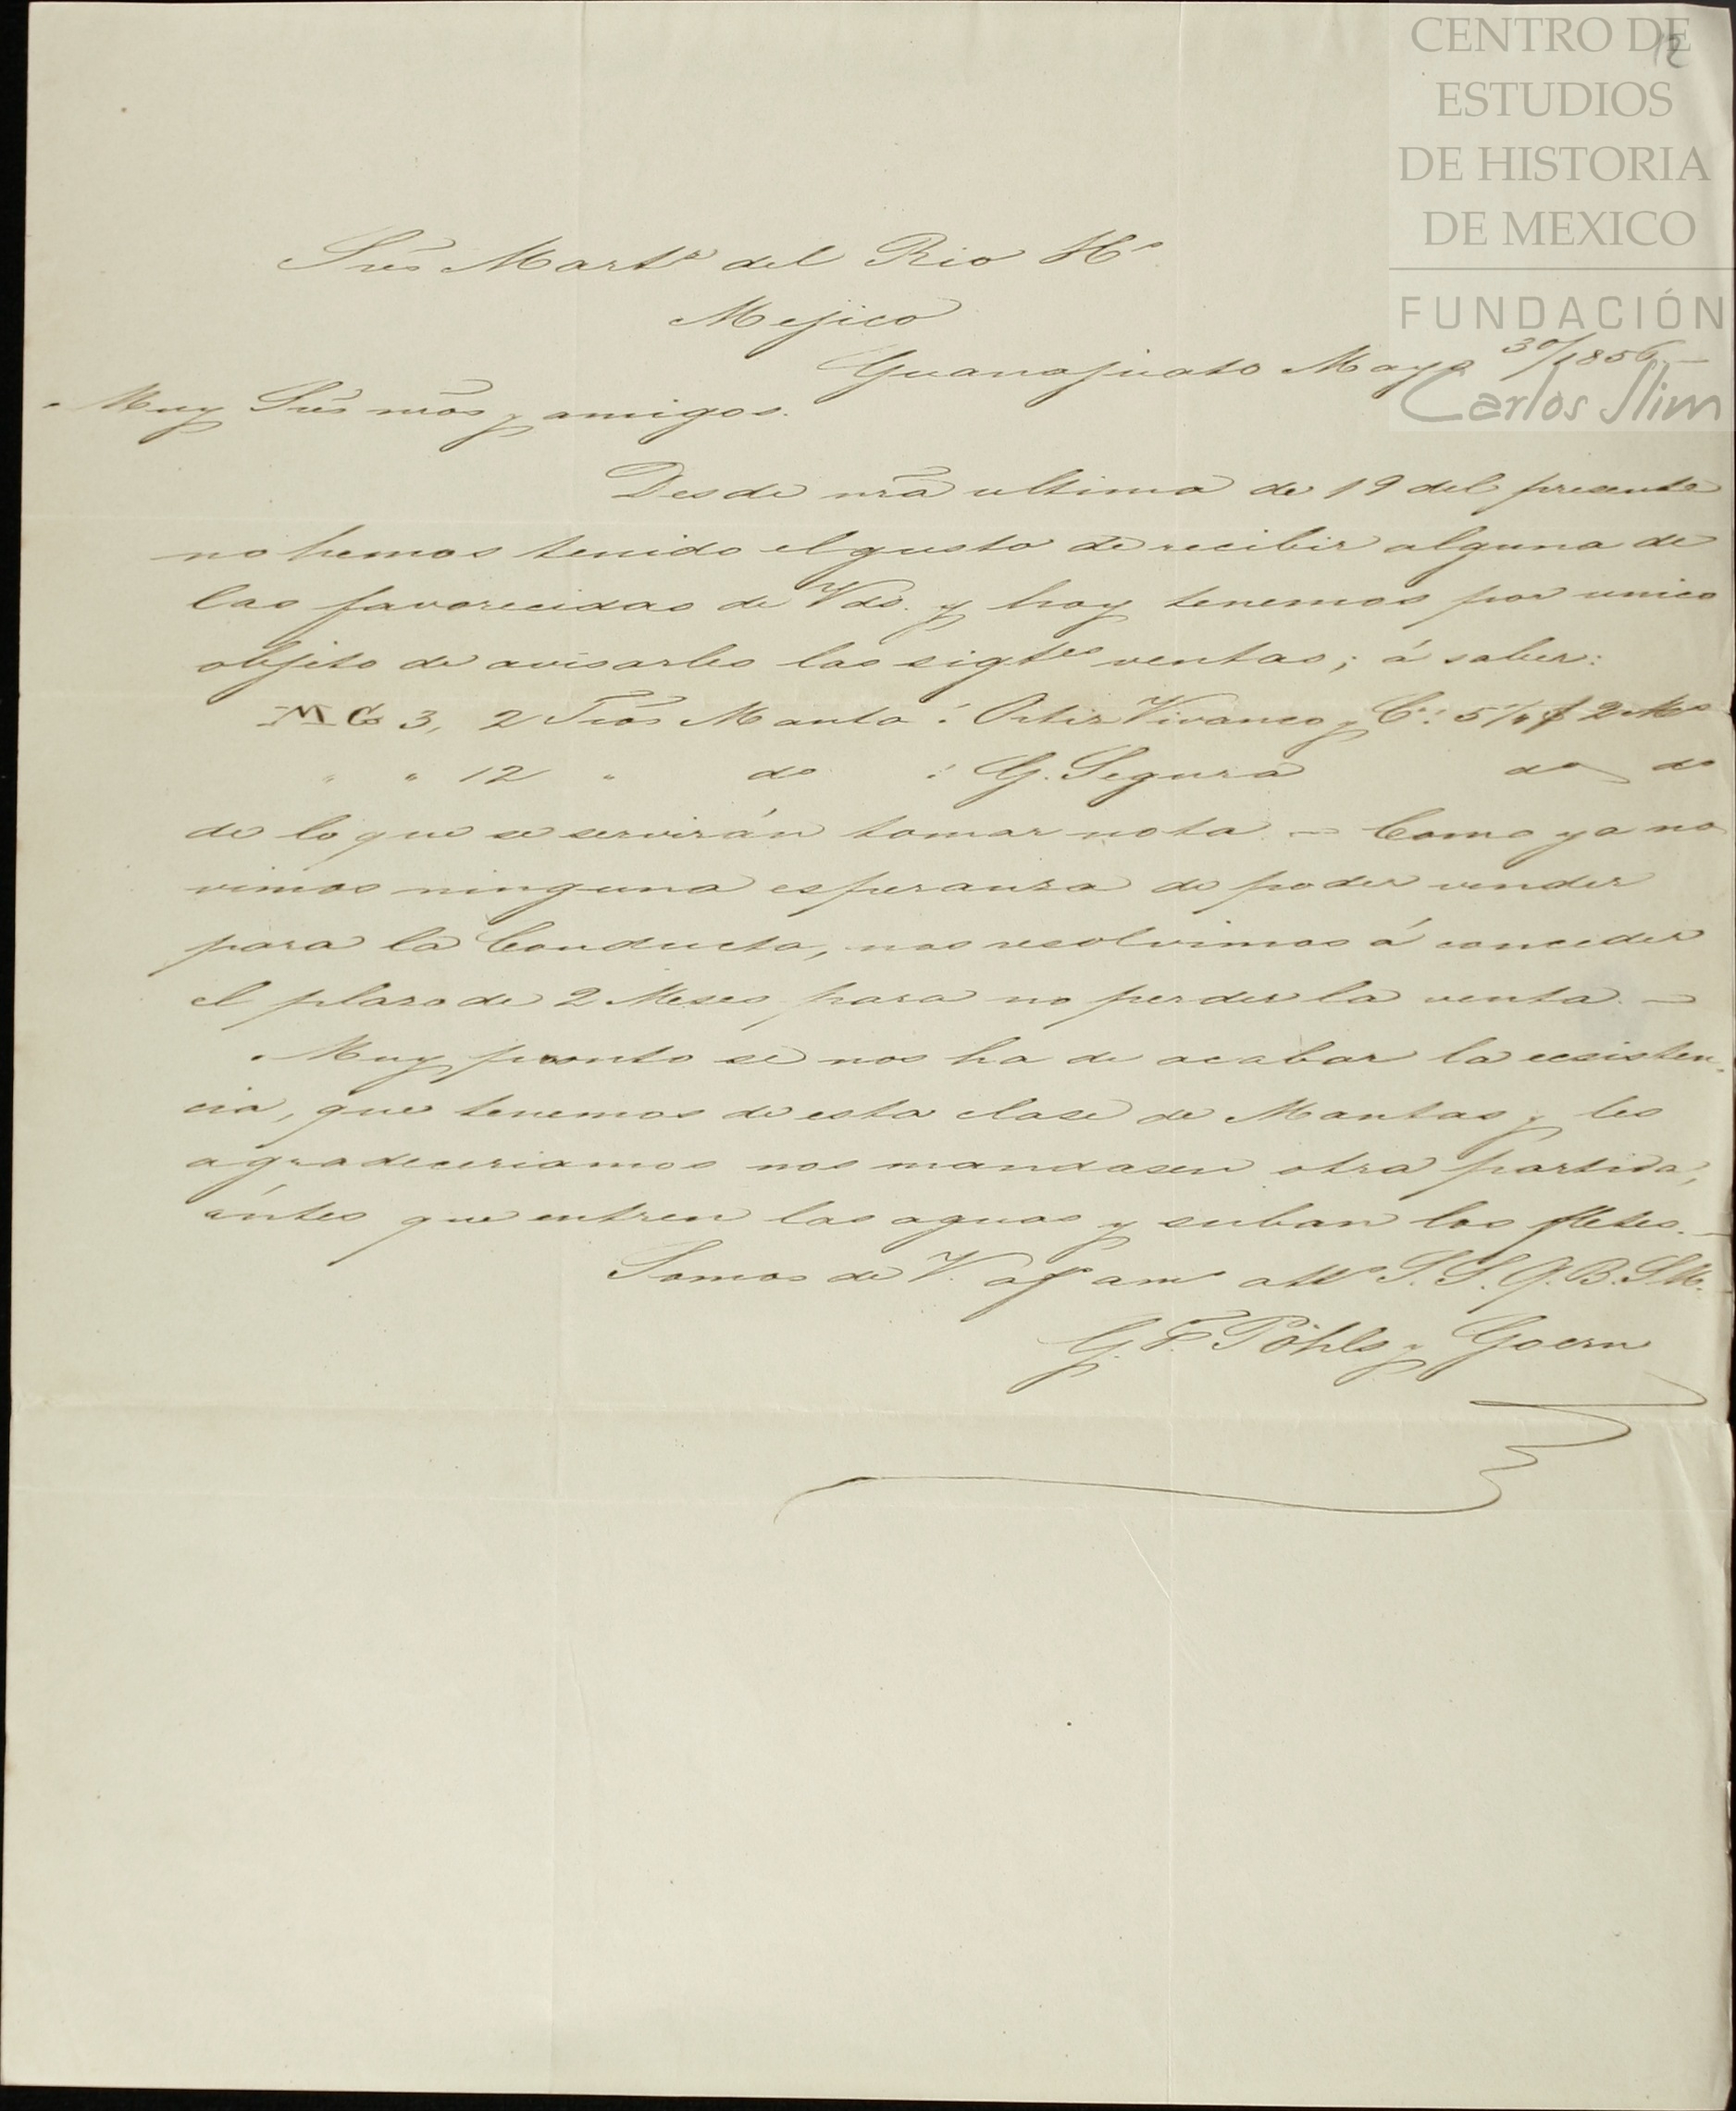 CENTRO DE
ESTUDIOS
DE HISTORIA
DE MEXICO
FUNDACIÓN
Carlos Slim
12
Sres Martz del Rio Hs
Mejico
Guanajuato Mayo 30/1856
Muy Sres nros y amigos.
Desde nra ultima de 19 del presente
no hemos tenido el gusto de recibir alguna de
las favorecidas de Vds. y hoy tenemos por unico
objeto de avisarles las sigtes ventas; á saber:
MG 3, 2 Tros Manta : Ortiz Vivanco y Ca:
" " 12 " do : G. Segura do do
de lo que se servirán tomar nota. – Como ya no
vimos ninguna esperanza de poder vender
para la Conducta, nos resolvimos á conceder
el plazo de 2 Meses para no perder la venta. –
Muy pronto se nos ha de acabar la ecsisten-
cia, que tenemos de esta clase de Mantas y les
agradeceriamos nos mandasen otra partida,
ántes que entren las aguas y suban los fletes. –
Somos de V. afs ams atts S. S. Q. B. S. M.
G. F. Pöhls y Goern